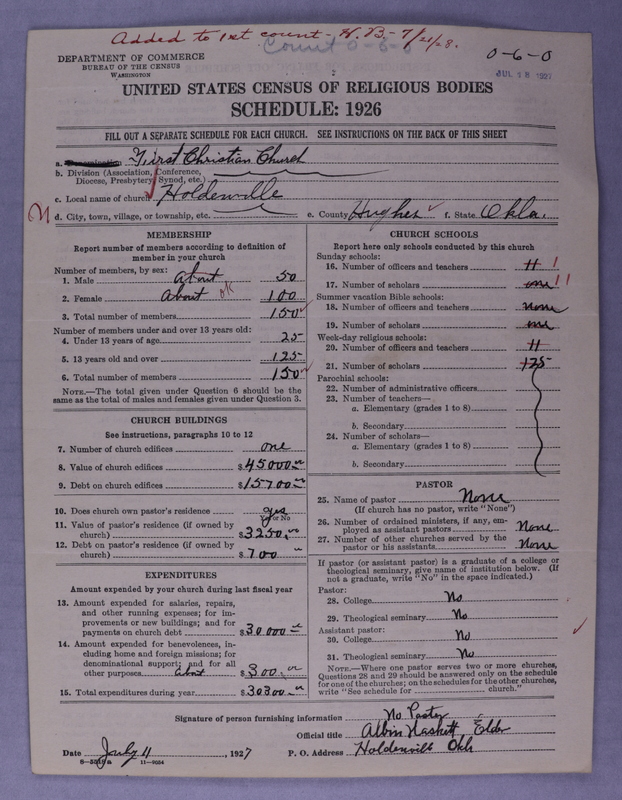 Added to 1st count - H.B. - 7/21/28.
Count 0-6-0
0-6-0
DEPARTMENT OF COMMERCE
BUREAU OF THE CENSUS
WASHINGTON
JUL 18 1927
UNITED STATES CENSUS OF RELIGIOUS BODIES
SCHEDULE: 1926
FILL OUT A SEPARATE SCHEDULE FOR EACH CHURCH. SEE INSTRUCTIONS ON THE BACK OF THIS SHEET
a. Denomination First Christian Church
b. Division (Association, Conference,
Diocese, Presbytery, Synod, etc.)
c. Local name of church Holdenville
d. City, town, village, or township, etc. e. County Hughes f. State Okla.
MEMBERSHIP
Report number of members according to definition of
member in your church
Number of members, by sex:
1. Male about 50
2. Female About ok 100
3. Total number of members 150
Number of members under and over 13 years old:
4. Under 13 years of age 25
5. 13 years old and over 125
6. Total number of members 150
NOTE.—The total given under Question 6 should be
same as the total of males and females given under Question 3.
CHURCH BUILDINGS
See instructions, paragraphs 10 to 12
7. Number of church edifices one
8. Value of church edifices $45000
9. Debt on church edifices $15700
10. Does church own pastor's residence yes
Yes or No
11. Value of pastor's residence (if owned by
church) $3250.
12. Debt on pastor's residence (if owned by
church) $700
EXPENDITURES
Amount expended by your church during last fiscal year
13. Amount expended for salaries, repairs,
and other running expenses; for im-
provements or new buildings; and for
payments on church debt $30000
14. Amount expended for benevolences, in-
cluding home and foreign missions; for
denominational support; and for all
other purposes about $300.
15. Total expenditures during year $30300.
CHURCH SCHOOLS
Report here only schools conducted by this church
Sunday schools:
16. Number of officers and teachers 11 1
17. Number of scholars one 11
Summer vacation Bible schools:
18. Number of officers and teachers none
19. Number of scholars one
Week-day religious schools:
20. Number of officers and teachers 11
21. Number of scholars 125
Parochial schools:
22. Number of administrative officers
23. Number of teachers—
a. Elementary (grades 1 to 8)
b. Secondary
24. Number of scholars—
a. Elementary (grades 1 to 8)
b. Secondary
PASTOR
25. Name of pastor None
(If church has no pastor, write "None")
26. Number of ordained ministers, if any, em-
ployed as assistant pastors None
27. Number of other churches served by the
pastor or his assistants None
If pastor (or assistant pastor) is a graduate of a college or
theological seminary, give name of institution below. (If
not a graduate, write "No" in the space indicated.)
Pastor:
28. College No
29. Theological seminary No
Assistant pastor:
30. College No
31. Theological seminary No
NOTE.—Where one pastor serves two or more churches,
Questions 28 and 29 should be answered only on the schedule
for one of the churches; on the schedules for the other churches,
write "See schedule for church."
Signature of person furnishing information No Pastor
Official title Albin Haskett Elder
Date July 11, 1927 P. O. Address Holdenville Okla
11—9054